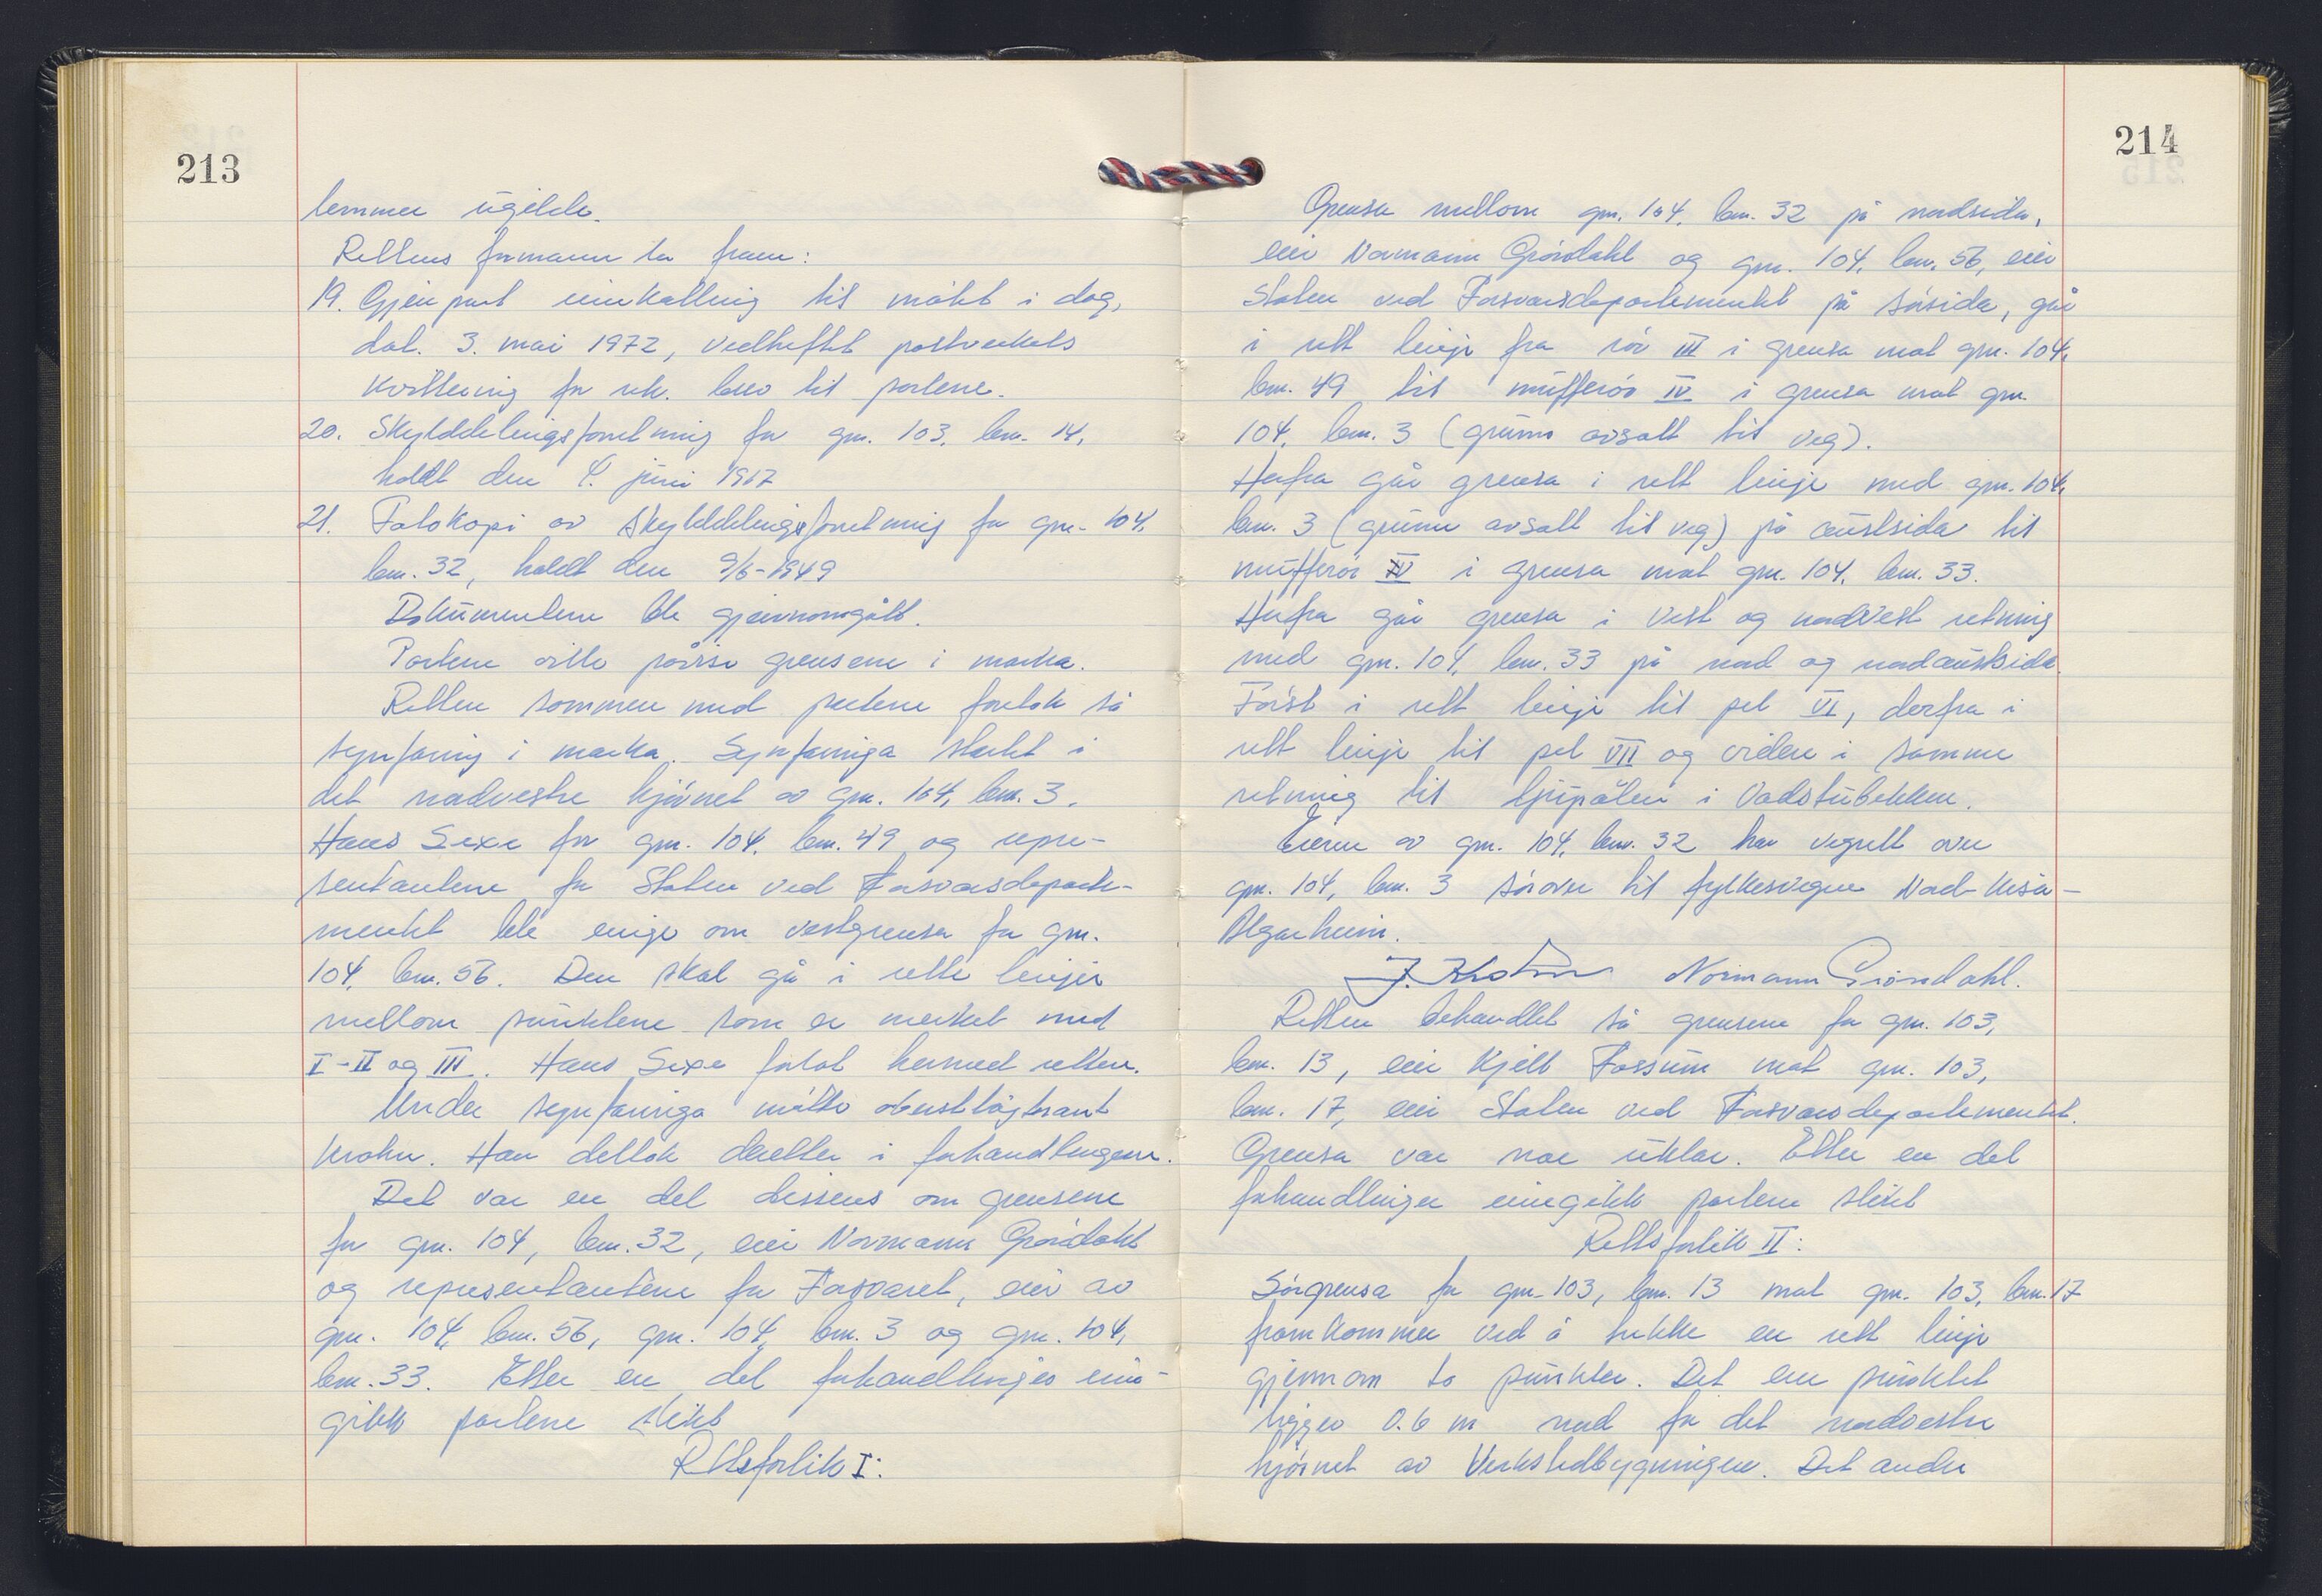 213
lemmer ugilde.
Rettens formann la fram:
19. Gjenpart innkalling til møtet i dag,
dat. 3. mai 1972, vedheftet postverkets
kvittering for rek. brev til partene.
20. Skylddelingsforretning for gnr. 103, bnr. 14,
holdt den 4. juni 1917
21. Fotokopi av skylddelingsforretning for gnr. 104,
bnr. 32, holdt den 9/6-1949
Dokumentene ble gjennomgått.
Partene ville påvise grensene i marka.
Retten sammen med partene foretok så
synfaring i marka. Synfaringa startet i
det nordvestre hjørnet av gnr. 104, bnr. 3.
Hans Sexe for gnr. 104, bnr. 49 og repre-
sentantene for Staten ved Forsvarsdeparte-
mentet ble enige om vestgrensa for gnr.
104, bnr. 56. Den skal gå i rette linjer
mellom punktene som er merket med
I-II og III. Hans Sexe forlot hermed retten.
Under synfaringa møtte oberstløytnant
Krohn. Han deltok deretter i forhandlingene.
Det var en del dissens om grensene
for gnr. 104, bnr. 32, eier Normann Grøndahl
og representantene for Forsvaret, eier av
gnr. 104, bnr. 56, gnr. 104, bnr. 3 og gnr. 104,
bnr. 33. Etter en del forhandlinger inn-
gikk partene slikt
Rettsforlik I:
214
Grensa mellom gnr. 104, bnr. 32 på nordsida,
eier Normann Grøndahl og gnr. 104, bnr. 56, eier
Staten ved Forsvarsdepartementet på sørsida, går
i rett linje fra rør III i grensa mot gnr. 104,
bnr. 49 til mufferør IV i grensa mot gnr.
104, bnr. 3 (grunn avsatt til veg).
Herfra går grensa i rett linje med gnr. 104,
bnr. 3 (grunn avsatt til veg) på austsida til
mufferør V i grensa mot gnr. 104, bnr. 33.
Herfra går grensa i vest og nordvest retning
med gnr. 104, bnr. 33 på nord og nordaustsida.
Først i rett linje til pel VI, derfra i
rett linje til pel VII og videre i samme
retning til djupålen i Vadstubekken.
Eieren av gnr. 104, bnr. 32 har vegrett over
gnr. 104, bnr. 3 sørover til fylkesvegen Nord-Kisa-
Algarheim.
J. Krohn Normann Grøndahl.
Retten behandlet så grensene for gnr. 103,
bnr. 13, eier Kjell Fossum mot gnr. 103,
bnr. 17, eier Staten ved Forsvarsdepartementet.
Grensa var noe uklar. Etter en del
forhandlinger inngikk partene slikt
Rettsforlik II:
Sørgrensa for gnr. 103, bnr. 13 mot gnr. 103, bnr. 17
framkommer ved å trekke en rett linje
gjennom to punkter. Det ene punktet
ligger 0.6 m nord for det nordvestre
hjørnet av Verkstedbygningen. Det andre